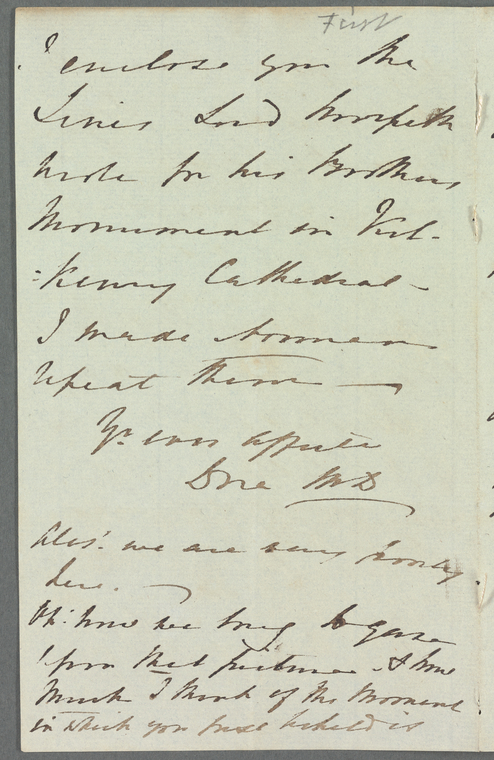 First
I enclose you the
Lines Lord Morpeth
wrote for his Brothers
Monument in Kil-
=kenny Cathedral -
I made
repeat them —
Yr ever affecte
M D
Alas! we are very
here.
Oh! how we long to gaze
upon that picture & how
much I think of the moment
in which you first beheld it